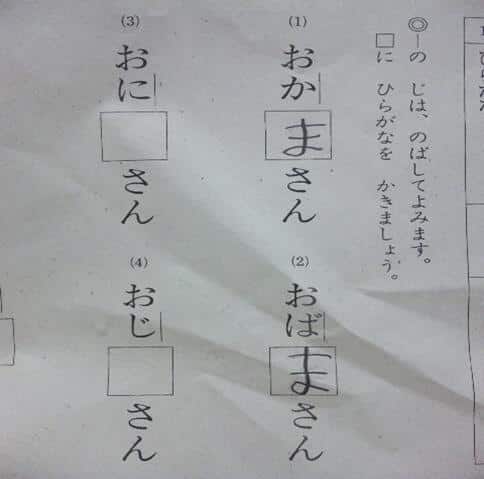 ◎―の じは、のばしてよみます。
□に ひらがなを かきましょう。
(1) おかまさん
(2) おばまさん
(3) おに□さん
(4) おじ□さん